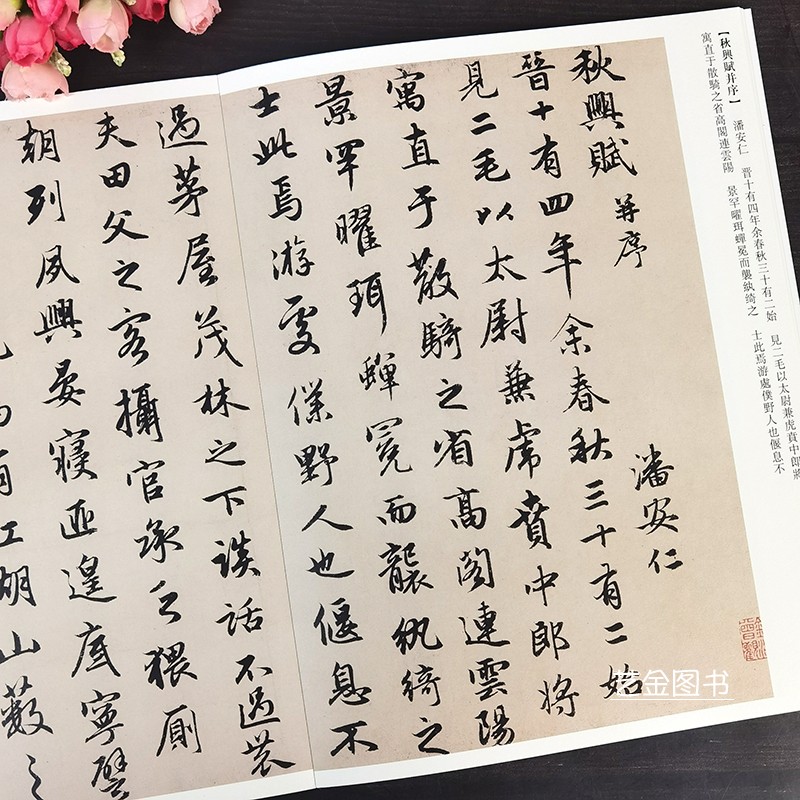 【秋興賦并序】 潘安仁 晋十有四年余春秋三十有二始 見二毛以太尉兼虎賁中郎將
寓直于散騎之省高閣連雲陽 景罕曜珥蟬冕而襲紈綺之 士此焉游處僕野人也偃息不
秋興賦 并序
潘安仁
晉十有四年余春秋三十有二始
見二毛以太尉兼虎賁中郎將
寓直于散騎之省高閣連雲陽
景罕曜珥蟬冕而襲紈綺之
士此焉游處僕野人也偃息不
過茅屋茂林之下談話不過農
夫田父之客攝官承乏猥廁
朝列夙興晏寢匪遑底寧譬
有江湖山藪之
金图书